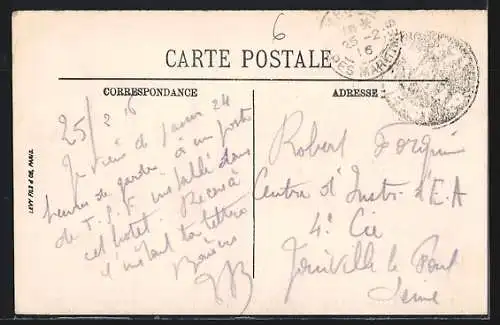 6
25-2
16
CARTE POSTALE
CORRESPONDANCE
ADRESSE
LEVY FILS & Cie, PARIS
25/2 16
Je viens de passer 24
heures de garde à un poste
de T.S.F. installé dans
cet hotel. Reçois à
l'instant ta lettre
Baisers
Robert
Centre d'Instr. d'E.A
4e Cie
Joinville le Pont
Seine